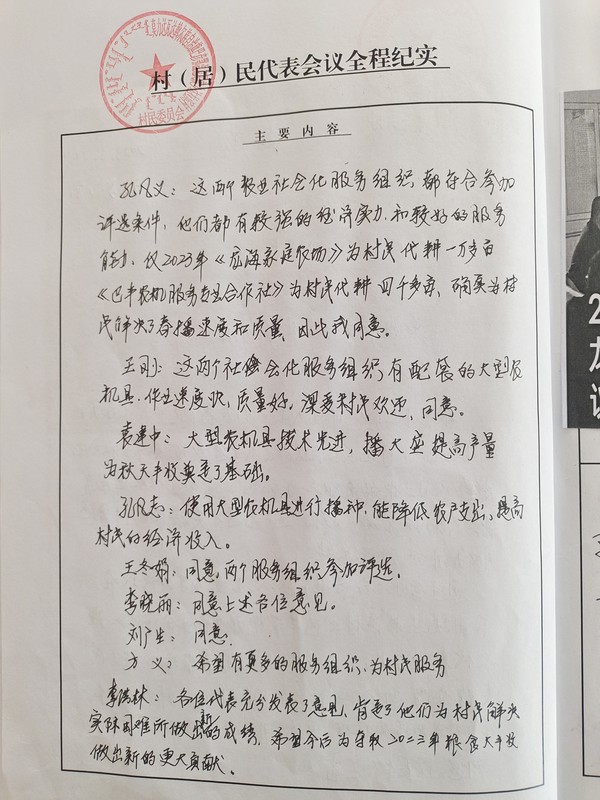 村（居）民代表会议全程纪实
村民委员会
主要内容
孔凡义：这两个农业社会化服务组织都符合参加
评选条件，他们都有较强的经济实力和较好的服务
能力，仅2023年《龙海家庭农场》为村民代耕一万多亩
《巴丰农机服务专业合作社》为村民代耕四千多亩，确实为村
民解决了春播速度和质量，因此我同意。
王刚：这两个社会化服务组织，有配套的大型农
机具，作业速度快，质量好，深受村民欢迎，同意。
袁建中：大型农机具技术先进，播大应提高产量
为秋天丰收奠定了基础。
孔凡志：使用大型农机具进行播种，能降低农户支出，提高
村民的经济收入。
王冬娟：同意，两个服务组织参加评选。
李晓丽：同意上述各位意见。
刘广生：同意
方义：希望有更多的服务组织，为村民服务
李洪林：各位代表充分发表了意见，肯定了他们为村民解决
实际困难所做出的成绩，希望今后为夺取二0二三年粮食大丰收
做出新的更大贡献。
2